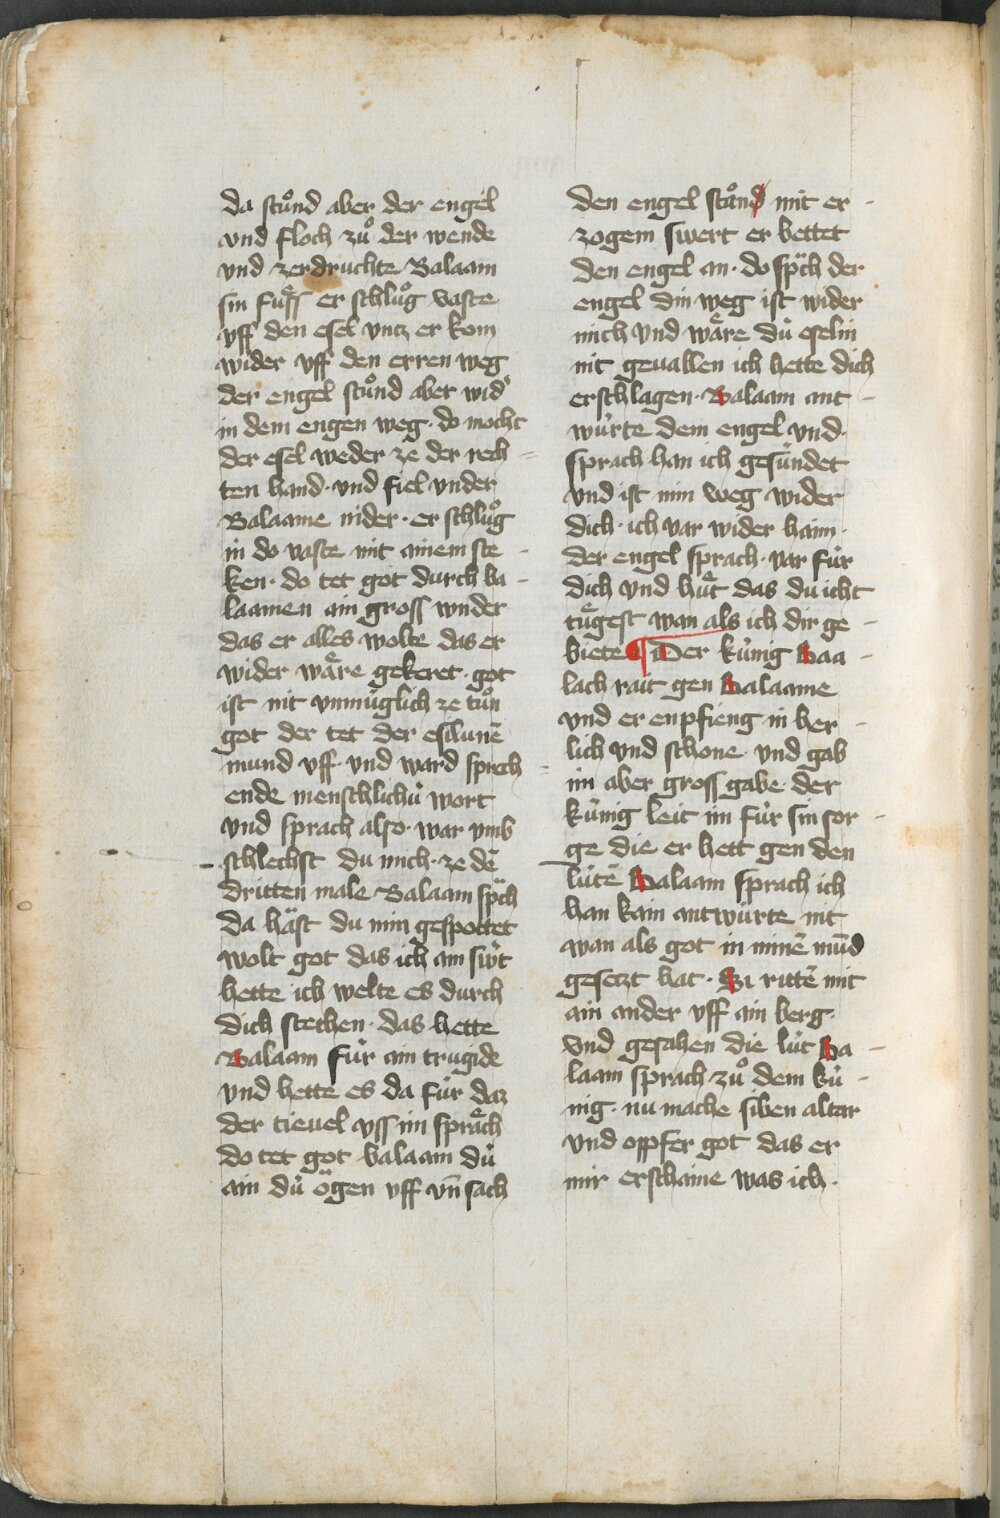 da stuͦnd aber der engel
vnd floch zuͦ der wende
vnd zerdruchte Balaam
sin fuͤss er schluͦg vaste
vff den esel vncz er kom
wider vff den erren weg
der engel stuͦnd aber wid̛
in dem engen weg · do mocht
der esel weder ze der rech
ten hand · vnd fiel vnder
Balaame nider · er schluͦg
in do vaste mit ainem ste
ken · do tet got durch ba
laamen ain gross wnder
das er alles wolte das er
wider waͤre gekeret · got
ist nit vnmuglich ze tuͦn
got der tet der esilunē
mund vff · vnd ward sprech
ende menschlichü wort
vnd sprach also · war vmb
schlechst du mich · ze dē
dritten male Balaam sp̈ch
da häst du min gespottet
wolt got das ich ain sẘt
hette ich welte es durch
dich stechen · das hette
Balaam für ain trugide
vnd hette es da für daz
der tieuel vss im spraͤch
do tet got balaam dü
ain dü ögen vff vn̄ sach
den engel stuͦnd mit er
zogem swert er bettet
den engel an · do sp̈ch der
engel din weg ist wider
mich vnd waͤre dü eselin
nit geuallen ich hette dich
erschlagen · Balaam ant
würte dem engel vnd ·
sprach han ich gesündet
vnd ist min weg wider
dich · ich var wider haim ·
der engel sprach · var für
dich vnd huͤt das du icht
tuͤgest wan als ich dir ge
biete ¶ Der künig Baa
lach rait gen Balaame
vnd er enpfieng in her
lich vnd schone vnd gab
im aber gross gabe · der
künig leit im für sin sor
ge die er hett gen den
lütē Balaam sprach ich
han kain antwürte nit
wan als got in minē mūd
gesetzt hat · Si rittē mit
ain ander vff ain berg ·
vnd gesahen die lüt Ba
laam sprach zuͦ dem kü
nig · nu mache siben altar
vnd opfer got das er
mir erschaine was ich ·